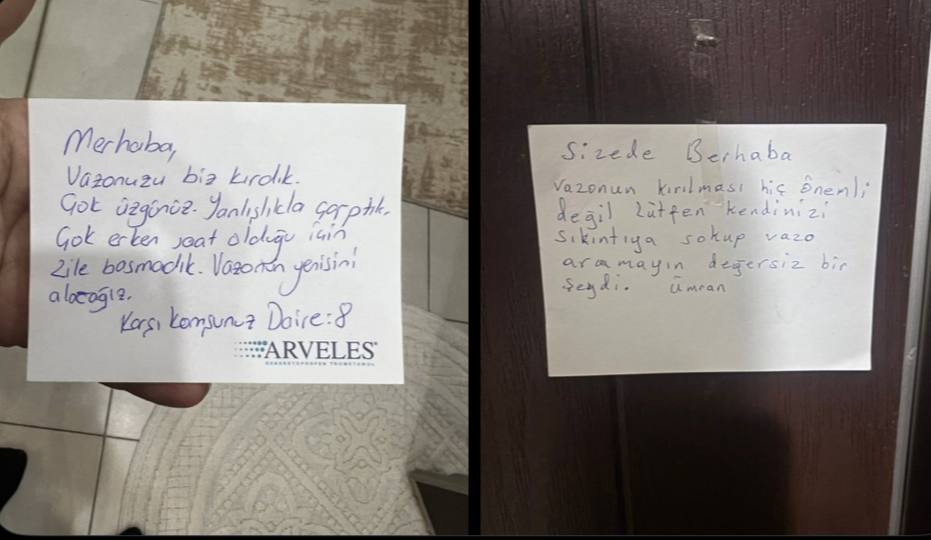 Merhaba,
Vazonuzu biz kırdık.
Çok üzgünüz. Yanlışlıkla çarptık.
Çok erken saat olduğu için
Zile basmadık. Vazonun yenisini
alacağız.
Karşı komşunuz Daire:8
ARVELES
DEKSKETOPROFEN TROMETAMOL
Sizede Berhaba
Vazonun kırılması hiç önemli
değil lütfen kendinizi
sıkıntıya sokup vazo
aramayın değersiz bir
şeydi. Ümran